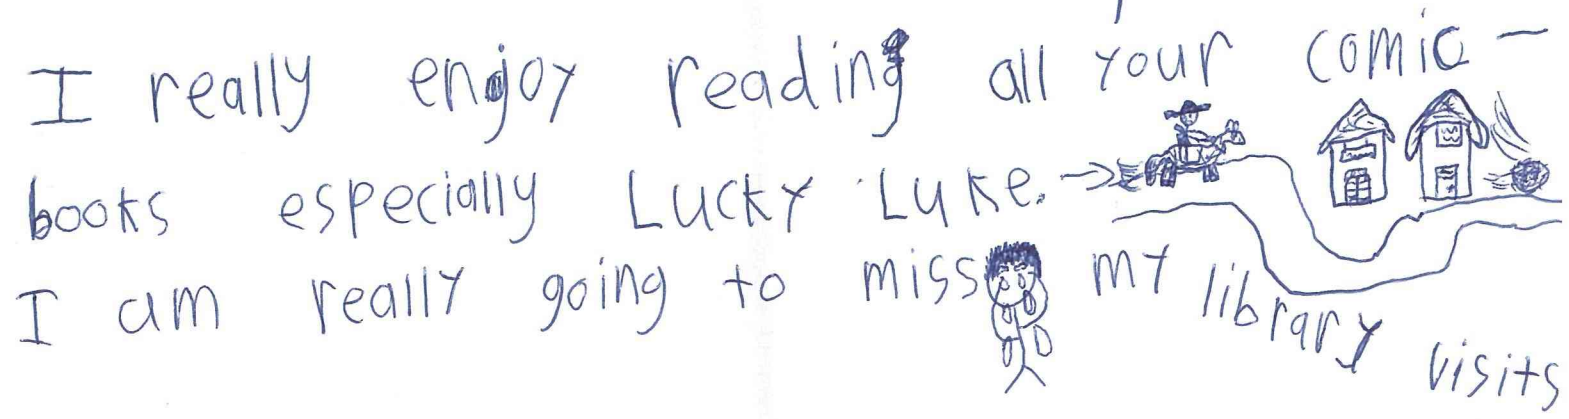 I really enjoy reading all your comic-
books especially Lucky Luke.
I am really going to miss my library visits